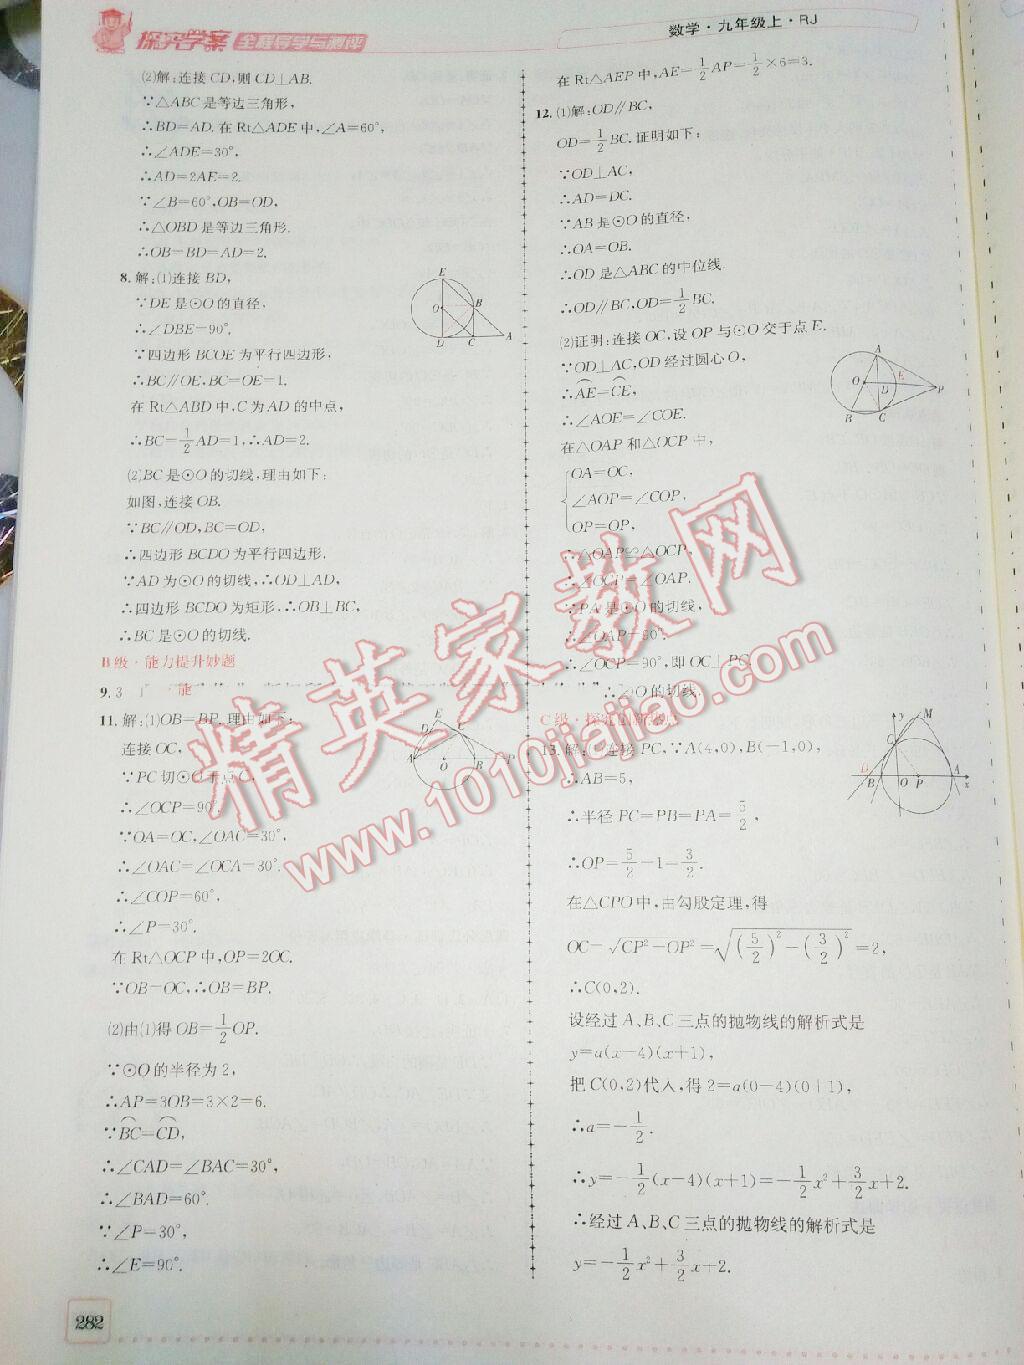 探究学案 全程导学与测评
数学·九年级上·RJ
(2)解:连接CD,则CD⊥AB.
∵△ABC是等边三角形,
∴BD=AD.在Rt△ADE中,∠A=60°,
∴∠ADE=30°.
∴AD=2AE=2.
∵∠B=60°,OB=OD,
∴△OBD是等边三角形.
∴OB=BD=AD=2.
8.解:(1)连接BD,
∵DE是⊙O的直径,
∴∠DBE=90°.
∵四边形BCOE为平行四边形,
∴BC∥OE,BC=OE=1.
在Rt△ABD中,C为AD的中点,
∴BC=1/2AD=1,∴AD=2.
(2)BC是⊙O的切线,理由如下:
如图,连接OB.
∵BC∥OD,BC=OD,
∴四边形BCDO为平行四边形.
∵AD为⊙O的切线,∴OD⊥AD,
∴四边形BCDO为矩形,∴OB⊥BC,
∴BC是⊙O的切线.
B级·能力提升妙题
9.3
11.解:(1)OB=BP.理由如下:
连接OC,
∵PC切⊙O于点C,
∴∠OCP=90°.
∵OA=OC,∠OAC=30°,
∴∠OAC=∠OCA=30°.
∴∠COP=60°,
∴∠P=30°.
在Rt△OCP中,OP=2OC.
∵OB=OC,∴OB=BP.
(2)由(1)得OB=1/2OP.
∵⊙O的半径为2,
∴AP=3OB=3×2=6.
∵BC=CD,
∴∠CAD=∠BAC=30°,
∴∠BAD=60°.
∵∠P=30°,
∴∠E=90°.
282
在Rt△AEP中,AE=1/2AP=1/2×6=3.
12.(1)解:OD∥BC,
OD=1/2BC.证明如下:
∵OD⊥AC,
∴AD=DC.
∵AB是⊙O的直径,
∴OA=OB.
∴OD是△ABC的中位线.
∴OD∥BC,OD=1/2BC.
(2)证明:连接OC,设OP与⊙O交于点E.
∵OD⊥AC,OD经过圆心O,
∴AE=CE,
∴∠AOE=∠COE.
在△OAP和△OCP中,
OA=OC,
∠AOP=∠COP,
OP=OP,
∴△OAP≌△OCP,
∴∠OCP=∠OAP.
∵PA是⊙O的切线,
∴∠OAP=90°.
∴∠OCP=90°,即OC⊥PC.
⊙O的切线.
C级·探究创新
13.解:①连接PC,∵A(4,0),B(-1,0),
∴AB=5,
∴半径PC=PB=PA=5/2,
∴OP=5/2-1=3/2.
在△CPO中,由勾股定理,得
OC=√(CP²-OP²)=√((5/2)²-(3/2)²)=2,
∴C(0,2).
设经过A、B、C三点的抛物线的解析式是
y=a(x-4)(x+1),
把C(0,2)代入,得2=a(0-4)(0+1),
∴a=-1/2.
∴y=-1/2(x-4)(x+1)=-1/2x²+3/2x+2.
∴经过A、B、C三点的抛物线的解析式是
y=-1/2x²+3/2x+2.
精英家教网
www.1010jiajiao.com